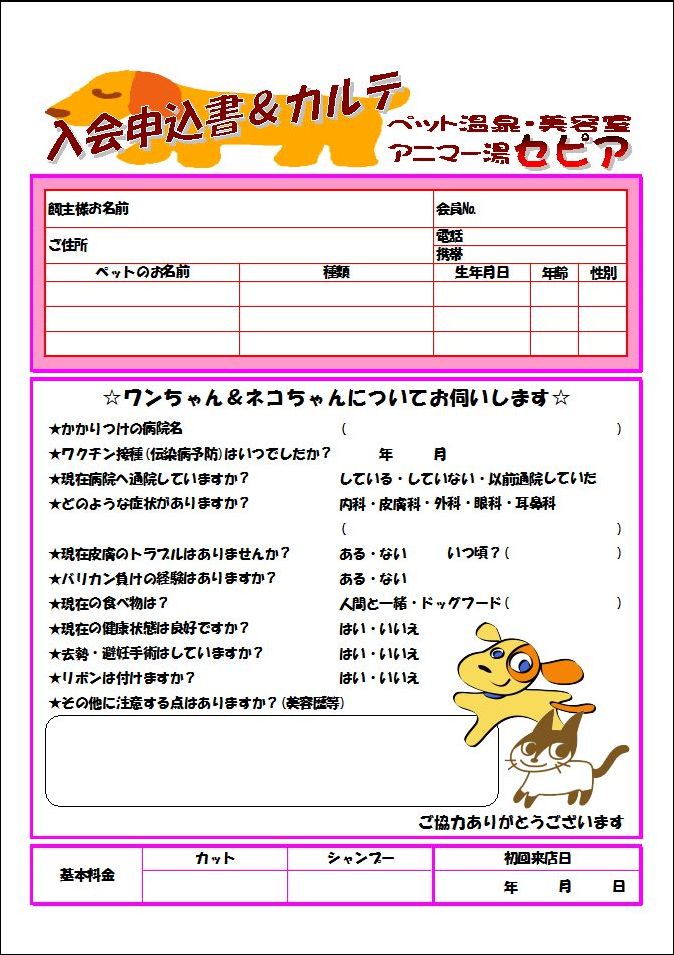 入会申込書＆カルテ
ペット温泉・美容室
アニマー湯 セピア
飼主様お名前 会員No.
ご住所 電話
携帯
ペットのお名前 種類 生年月日 年齢 性別
☆ワンちゃん＆ネコちゃんについてお伺いします☆
★かかりつけの病院名 ( )
★ワクチン接種(伝染病予防)はいつでしたか？ 年 月
★現在病院へ通院していますか？ している・していない・以前通院していた
★どのような症状がありますか？ 内科・皮膚科・外科・眼科・耳鼻科
( )
★現在皮膚のトラブルはありませんか？ ある・ない いつ頃？( )
★バリカン負けの経験はありますか？ ある・ない
★現在の食べ物は？ 人間と一緒・ドッグフード( )
★現在の健康状態は良好ですか？ はい・いいえ
★去勢・避妊手術はしていますか？ はい・いいえ
★リボンは付けますか？ はい・いいえ
★その他に注意する点はありますか？(美容歴等)
ご協力ありがとうございます
基本料金 カット シャンプー 初回来店日
年 月 日